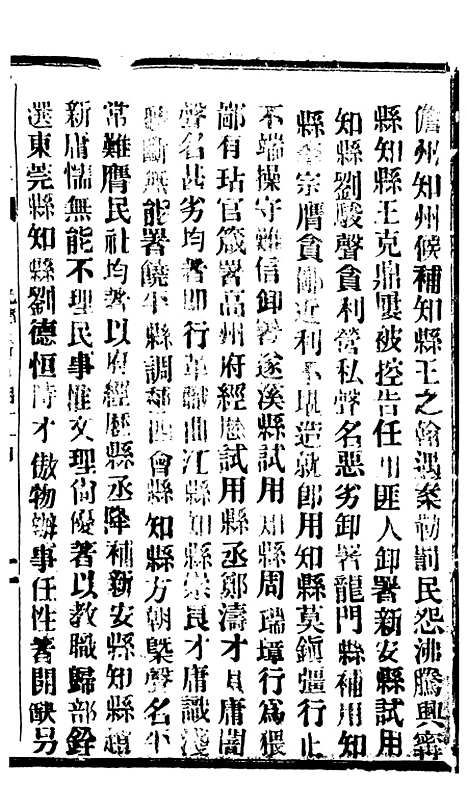 儋州知州候補知縣王之翰遇案勒罰民怨沸騰興寧
縣知縣王克鼎屢被控告任用匪人卸署新安縣試用
知縣劉駿聲貪利營私聲名惡劣卸署龍門縣補用知
縣宗膺貪鄙近利不堪造就卽用知縣莫鎭疆行止
不端操守難信卸署遂溪縣試用知縣周瑞璋行爲猥
鄙有玷官箴署高州府經歷試用縣丞鄭濤才具庸闇
聲名甚劣均著卽行革職曲江縣知縣崇良才庸識淺
斷無能署饒平縣調補四會縣知縣方朝槩聲名平
常難膺民社均著以府經歷縣丞降補新安縣知縣趙
新庸懦無能不理民事惟文理尙優著以教職歸部銓
選東莞縣知縣劉德恒恃才傲物辦事任性著開缺另